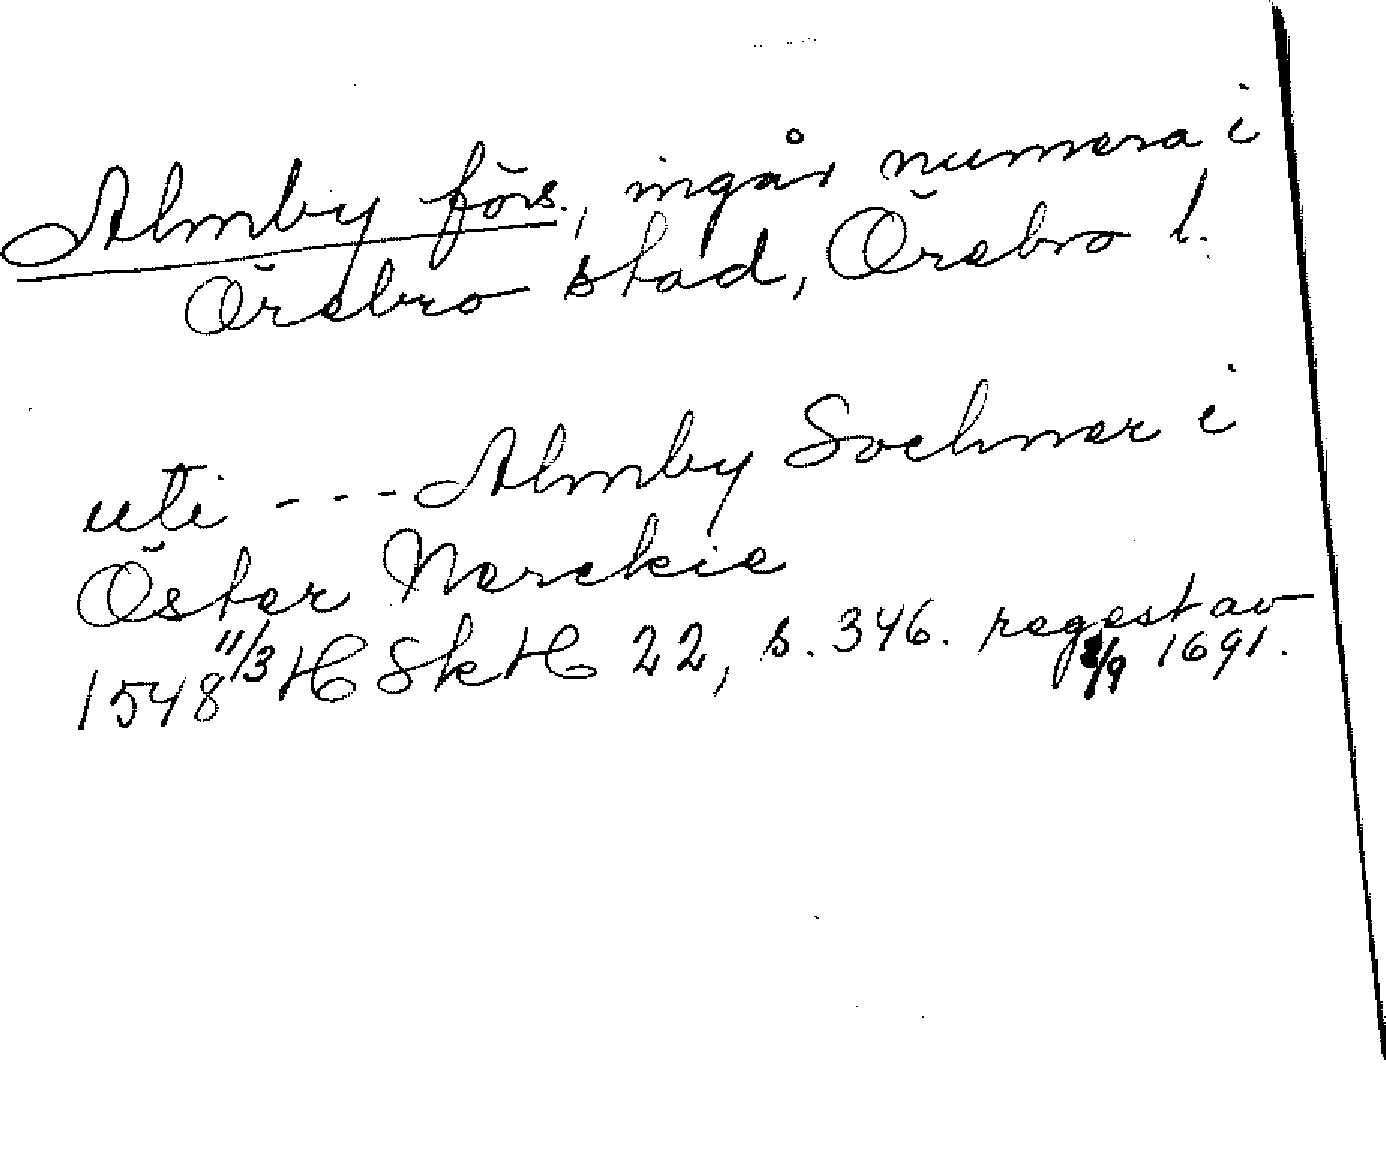 Almby förs., ingår numera i
Örebro stad, Örebro l.
uti --- Almby Sochner i
Öster Nerckie
1548 11/3 HSkH 22, s. 346. regest av
2/9 1691.